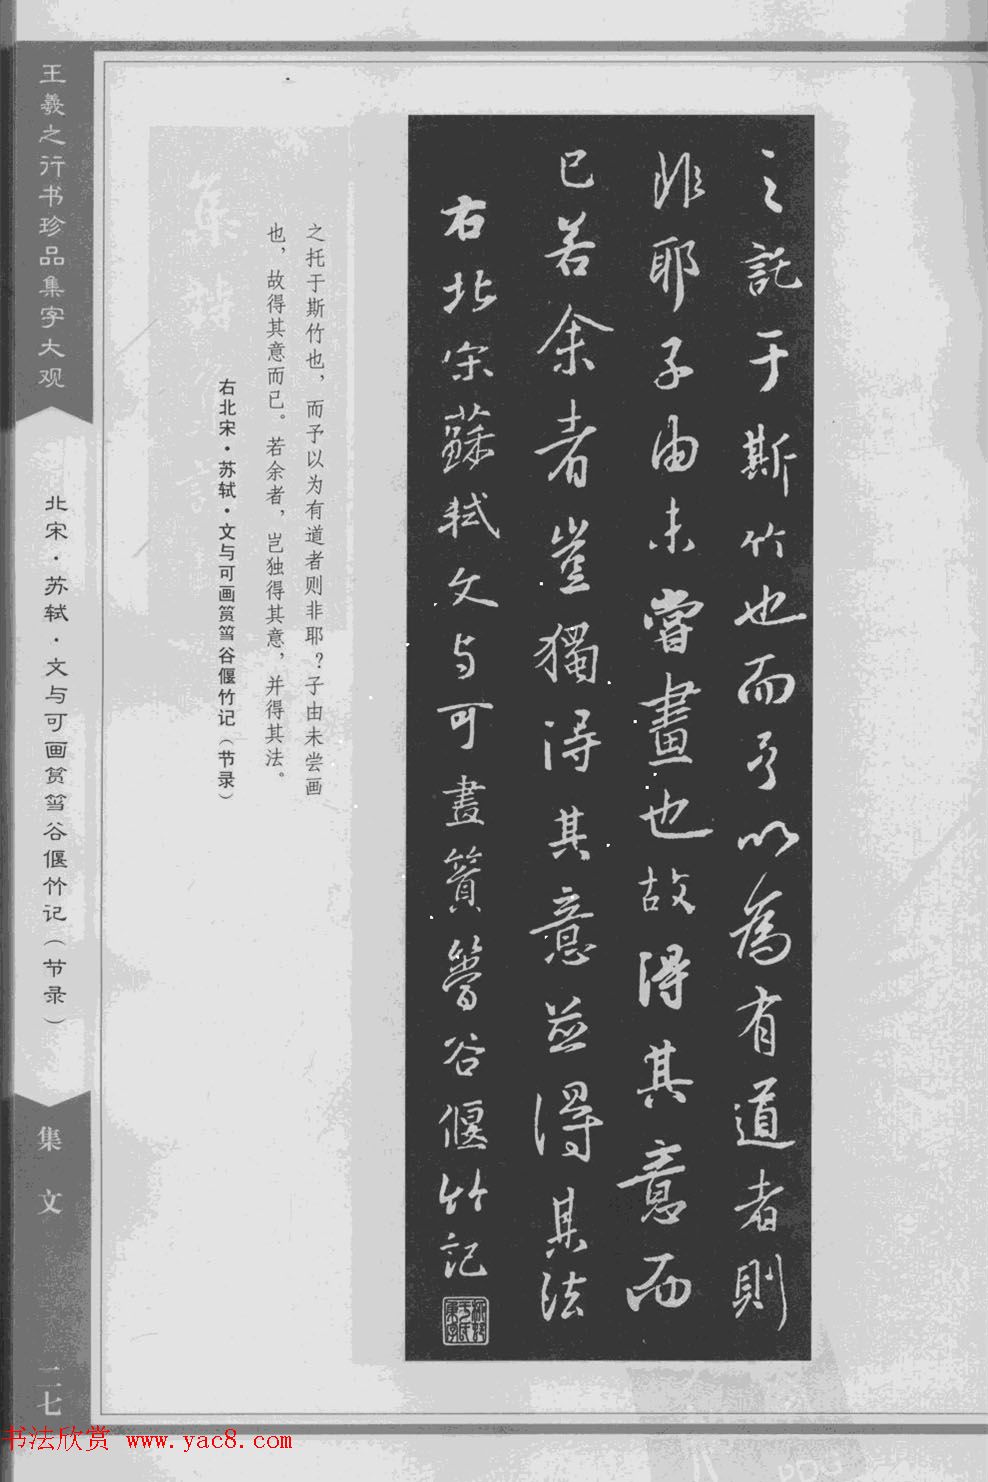 之託于斯竹也而予以為有道者則
非耶子由未嘗畫也故得其意而
已若余者豈獨得其意並得其法
右北宋蘇軾文与可畫篔簹谷偃竹記
之托于斯竹也，而予以为有道者则非耶？子由未尝画
也，故得其意而已。若余者，岂独得其意，并得其法。
右北宋·苏轼·文与可画筼筜谷偃竹记（节录）
王羲之行书珍品集字大观
北宋·苏轼·文与可画筼筜谷偃竹记（节录）
集文
二七
书法欣赏 www.yac8.com